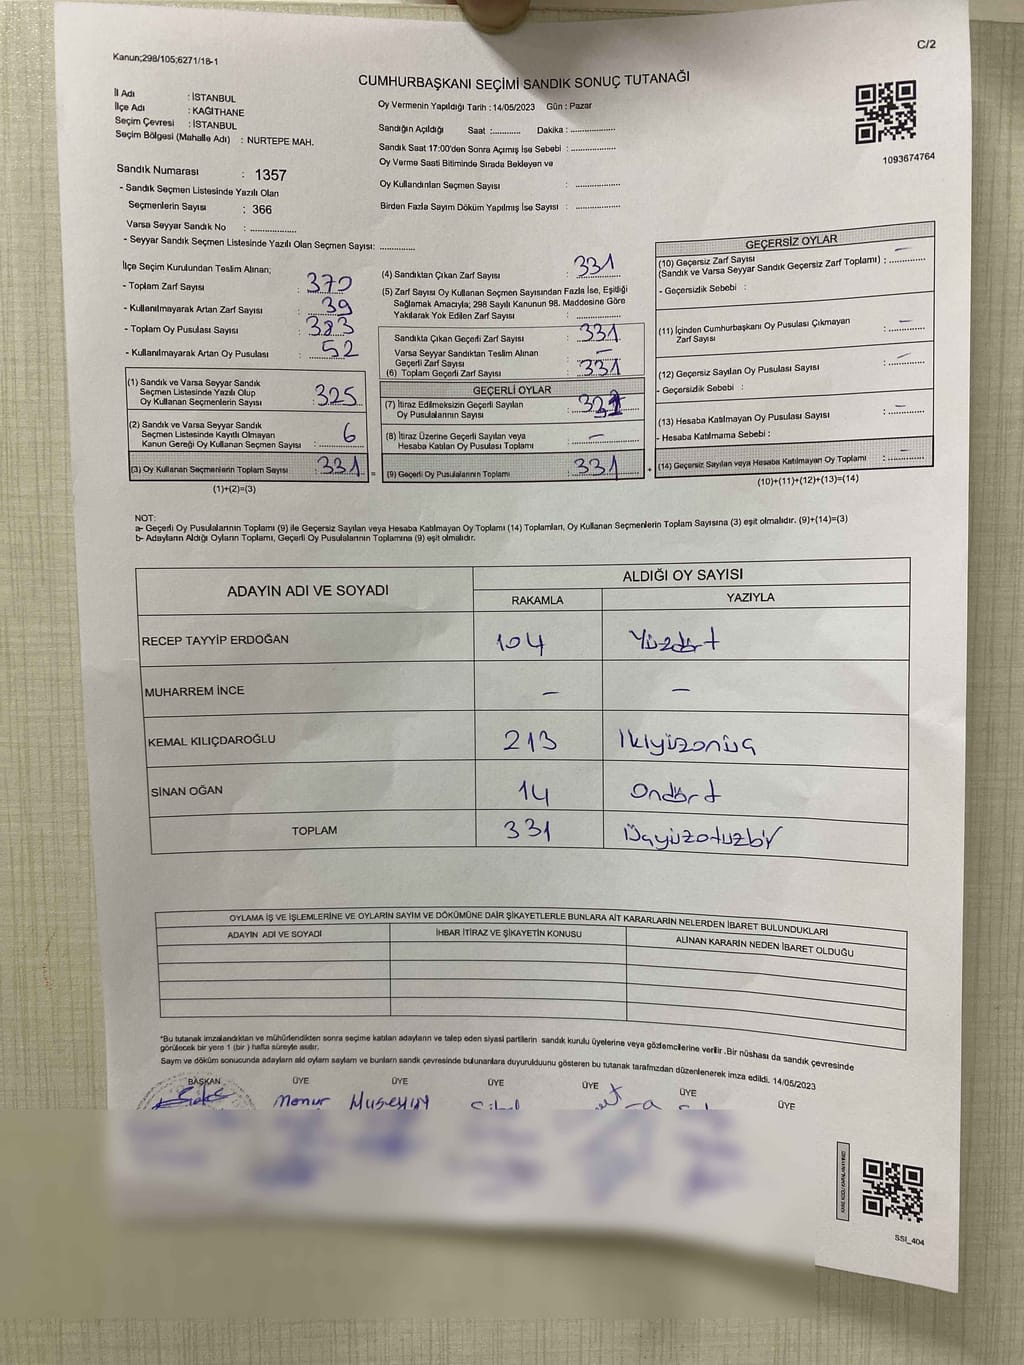 Kanun;298/105;6271/18-1
C/2
CUMHURBAŞKANI SEÇİMİ SANDIK SONUÇ TUTANAĞI
İl Adı : İSTANBUL
İlçe Adı : KAĞITHANE
Seçim Çevresi : İSTANBUL
Seçim Bölgesi (Mahalle Adı) : NURTEPE MAH.
Sandık Numarası : 1357
- Sandık Seçmen Listesinde Yazılı Olan
Seçmenlerin Sayısı : 366
Varsa Seyyar Sandık No : ..................
- Seyyar Sandık Seçmen Listesinde Yazılı Olan Seçmen Sayısı: .............
Oy Vermenin Yapıldığı Tarih : 14/05/2023 Gün : Pazar
Sandığın Açıldığı Saat :........... Dakika : .................
Sandık Saat 17:00'den Sonra Açımış İse Sebebi : .................
Oy Verme Saati Bitiminde Sırada Bekleyen ve
Oy Kullandırılan Seçmen Sayısı : .................
Birden Fazla Sayım Döküm Yapılmış İse Sayısı : .................
1093674764
İlçe Seçim Kurulundan Teslim Alınan;
- Toplam Zarf Sayısı : 370
- Kullanılmayarak Artan Zarf Sayısı : 39
- Toplam Oy Pusulası Sayısı : 383
- Kullanılmayarak Artan Oy Pusulası : 52
(1) Sandık ve Varsa Seyyar Sandık
Seçmen Listesinde Yazılı Olup
Oy Kullanan Seçmenlerin Sayısı : 325
(2) Sandık ve Varsa Seyyar Sandık
Seçmen Listesinde Kayıtlı Olmayan
Kanun Gereği Oy Kullanan Seçmen Sayısı : 6
(3) Oy Kullanan Seçmenlerin Toplam Sayısı : 331 =
(1)+(2)=(3)
(4) Sandıktan Çıkan Zarf Sayısı : 331
(5) Zarf Sayısı Oy Kullanan Seçmen Sayısından Fazla İse, Eşitliği
Sağlamak Amacıyla; 298 Sayılı Kanunun 98. Maddesine Göre
Yakılarak Yok Edilen Zarf Sayısı : .............
Sandıkta Çıkan Geçerli Zarf Sayısı : 331
Varsa Seyyar Sandıktan Teslim Alınan
Geçerli Zarf Sayısı : –
(6) Toplam Geçerli Zarf Sayısı : 331
GEÇERLİ OYLAR
(7) İtiraz Edilmeksizin Geçerli Sayılan
Oy Pusulalarının Sayısı : 331
(8) İtiraz Üzerine Geçerli Sayılan veya
Hesaba Katılan Oy Pusulası Toplamı : –
(9) Geçerli Oy Pusulalarının Toplamı : 331 +
GEÇERSİZ OYLAR
(10) Geçersiz Zarf Sayısı
(Sandık ve Varsa Seyyar Sandık Geçersiz Zarf Toplamı) : –
- Geçersizlik Sebebi :
(11) İçinden Cumhurbaşkanı Oy Pusulası Çıkmayan
Zarf Sayısı : –
(12) Geçersiz Sayılan Oy Pusulası Sayısı : –
- Geçersizlik Sebebi :
(13) Hesaba Katılmayan Oy Pusulası Sayısı : –
- Hesaba Katılmama Sebebi :
(14) Geçersiz Sayılan veya Hesaba Katılmayan Oy Toplamı : –
(10)+(11)+(12)+(13)=(14)
NOT:
a- Geçerli Oy Pusulalarının Toplamı (9) ile Geçersiz Sayılan veya Hesaba Katılmayan Oy Toplamı (14) Toplamları, Oy Kullanan Seçmenlerin Toplam Sayısına (3) eşit olmalıdır. (9)+(14)=(3)
b- Adayların Aldığı Oyların Toplamı, Geçerli Oy Pusulalarının Toplamına (9) eşit olmalıdır.
ADAYIN ADI VE SOYADI
ALDIĞI OY SAYISI
RAKAMLA YAZIYLA
RECEP TAYYİP ERDOĞAN 104 Yüzdört
MUHARREM İNCE – –
KEMAL KILIÇDAROĞLU 213 İkiyüzonüç
SİNAN OĞAN 14 Ondört
TOPLAM 331 Üçyüzotuzbir
OYLAMA İŞ VE İŞLEMLERİNE VE OYLARIN SAYIM VE DÖKÜMÜNE DAİR ŞİKAYETLERLE BUNLARA AİT KARARLARIN NELERDEN İBARET BULUNDUKLARI
ADAYIN ADI VE SOYADI İHBAR İTİRAZ VE ŞİKAYETİN KONUSU ALINAN KARARIN NEDEN İBARET OLDUĞU
*Bu tutanak imzalandıktan ve mühürlendikten sonra seçime katılan adayların ve talep eden siyasi partilerin sandık kurulu üyelerine veya gözlemcilerine verilir .Bir nüshası da sandık çevresinde
görülecek bir yere 1 (bir ) hafta süreyle asılır.
Sayım ve döküm sonucunda adayların aldı oyların sayıları ve bunların sandık çevresinde bulunanlara duyurulduunu gösteren bu tutanak tarafımızdan düzenlenerek imza edildi. 14/05/2023
BAŞKAN ÜYE ÜYE ÜYE ÜYE ÜYE ÜYE
Hüseyin
SSI_404